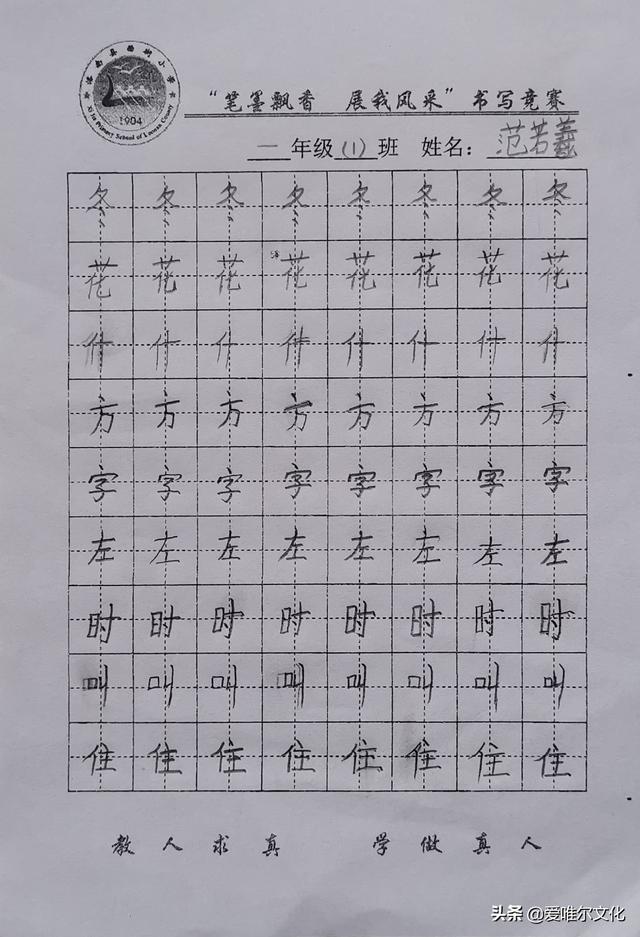 洛南县西街小学
1904
Xi Jie Primary School of Luonan County
“笔墨飘香 展我风采”书写竞赛
一年级(1)班 姓名：范若羲
冬冬冬冬冬冬冬冬
花花花花花花花花
什什什什什什什什
方方方方方方方方
字字字字字字字字
左左左左左左左左
时时时时时时时时
叫叫叫叫叫叫叫叫
住住住住住住住住
教人求真 学做真人
头条 @爱唯尔文化